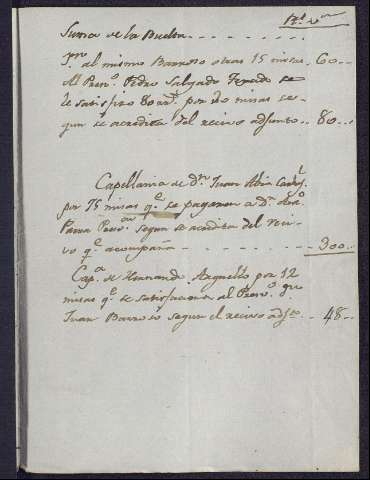 Rs. von
Suma de la Buelta - - - - - - - -
Yt. al mismo Barroso otras 15 misas.. 60...
Al Presvo. Pedro Salgado se
le satisfizo 80 rs. por 20 misas se-
gun se acredita del recivo adjunto.. 80...
Capellania de Dn. Juan
por 75 misas qe. se pagaron a Dn.
Parra Presvo. segun se acredita del reci-
vo qe. acompaña - - - - - - 300..
Capa. de Hernando Arguello por 12
misas qe. se satisfacieron al Presvo. Dn.
Juan Barroso segun el recivo adjto. .. 48..